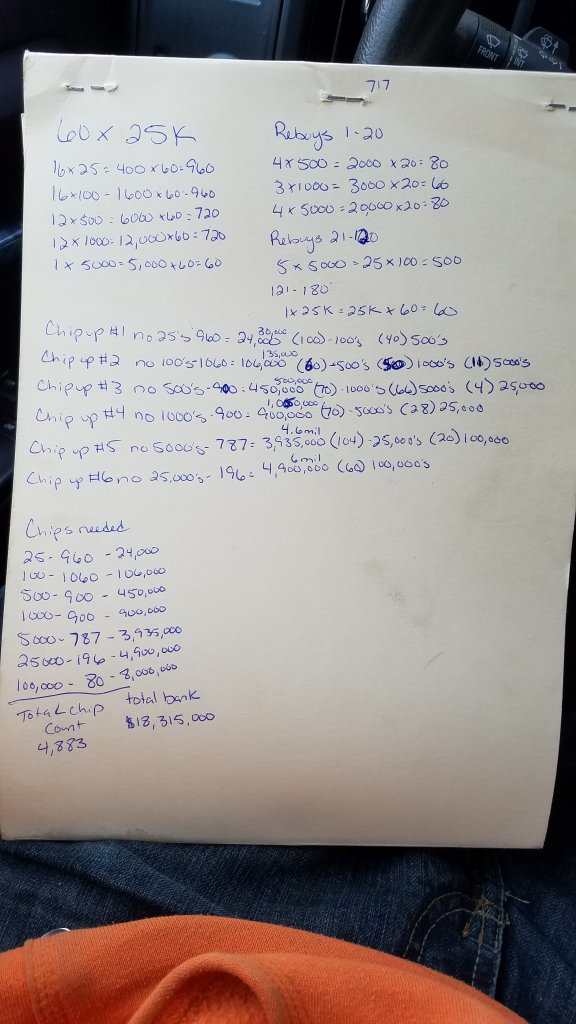 FRONT
INT
717
60 x 25K
16x25 = 400 x 60 = 960
16x100 - 1600 x 60 = 960
12x500 = 6000 x 60 = 720
12x1000 = 12,000x60 = 720
1 x 5000 = 5,000 x 60 = 60
Rebuys 1-20
4x500 = 2000 x 20 = 80
3x1000 = 3000 x 20 = 60
4x5000 = 20,000 x 20 = 80
Rebuys 21-120
5x5000 = 25x100 = 500
121-180
1x25K = 25K x 60 = 60
30,000
Chip up #1 no 25's 960 = 24,000 (100)-100's (40) 500's
135,000
Chip up #2 no 100's-1060 = 106,000 (60)-500's (50) 1000's (11) 5000's
500,000
Chip up #3 no 500's-900 = 450,000 (70)-1000's (66) 5000's (4) 25,000
1,050,000
Chip up #4 no 1000's-900 = 900,000 (70)-5000's (28) 25,000
4.6mil
Chip up #5 no 5000's-787 = 3,935,000 (104)-25,000's (20) 100,000
6mil
Chip up #6 no 25,000's-196 = 4,900,000 (60) 100,000's
Chips needed
25-960 - 24,000
100-1060 - 106,000
500-900 - 450,000
1000-900 - 900,000
5000-787 - 3,935,000
25000-196 - 4,900,000
100,000 - 80 - 8,000,000
Total chip
Count
4,883
total bank
$18,315,000